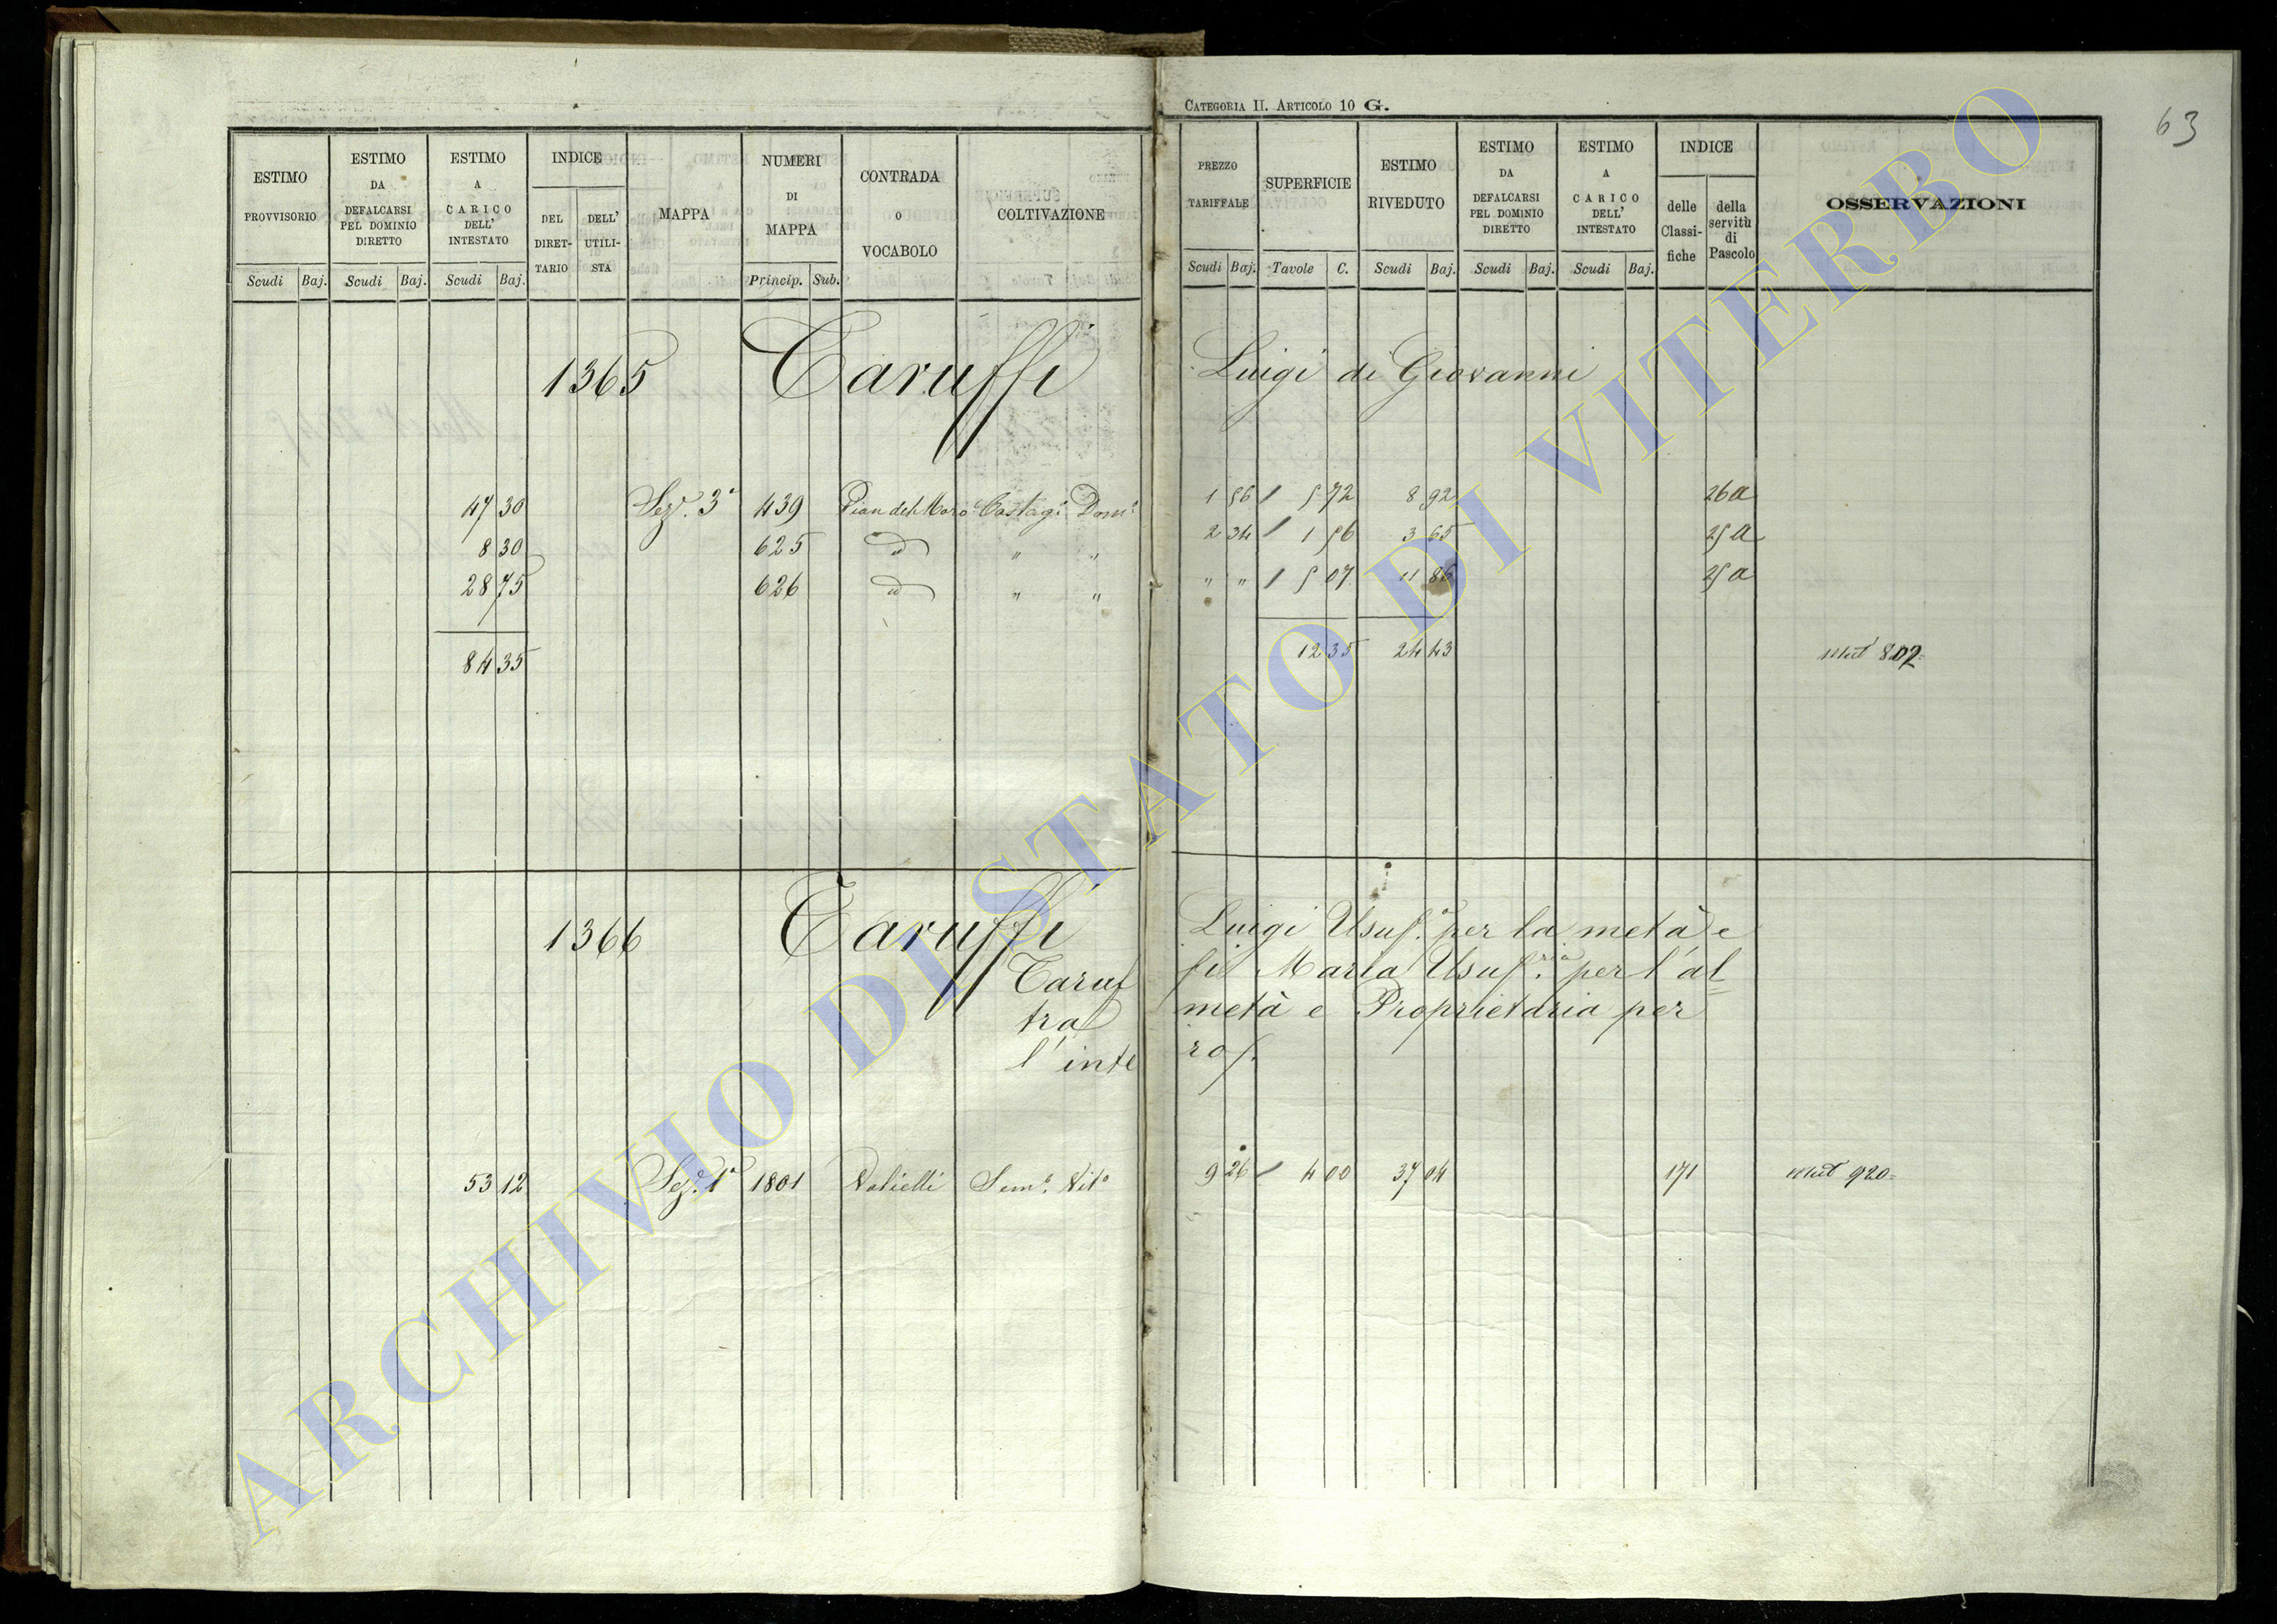 CATEGORIA II. ARTICOLO 10 G.
63
ESTIMO PROVVISORIO
ESTIMO DA DEFALCARSI PEL DOMINIO DIRETTO
ESTIMO A CARICO DELL' INTESTATO
INDICE
DEL DIRET-TARIO
DELL' UTILI-STA
MAPPA
NUMERI DI MAPPA
CONTRADA O VOCABOLO
COLTIVAZIONE
PREZZO TARIFFALE
SUPERFICIE
ESTIMO RIVEDUTO
ESTIMO DA DEFALCARSI PEL DOMINIO DIRETTO
ESTIMO A CARICO DELL' INTESTATO
INDICE
delle Classi-fiche
della servitù di Pascolo
OSSERVAZIONI
Scudi Baj. Scudi Baj. Scudi Baj. Princip. Sub. Scudi Baj. Tavole C. Scudi Baj. Scudi Baj. Scudi Baj.
1365 Taruffi Luigi di Giovanni
47 30 Sez.e 3a 439 Pian del Moro Castag.o Dom.o 1 56 / 5 72 8 92 26a
8 30 625 id " " 2 34 / 1 56 3 65 25a
28 75 626 id " " " " / 5 07 11 86 25a
84 35 12 35 24 43 Mut 802=
1366 Taruffi Luigi Usuf.o per la metà e
Taruffi Maria Usuf.ria per l'al
tra metà e Proprietaria per
l'intero
53 12 Sez.e 1a 1801 Sem.o Vit.o 9 26 / 4 00 37 04 171 Mut 920=
ARCHIVIO DI STATO DI VITERBO